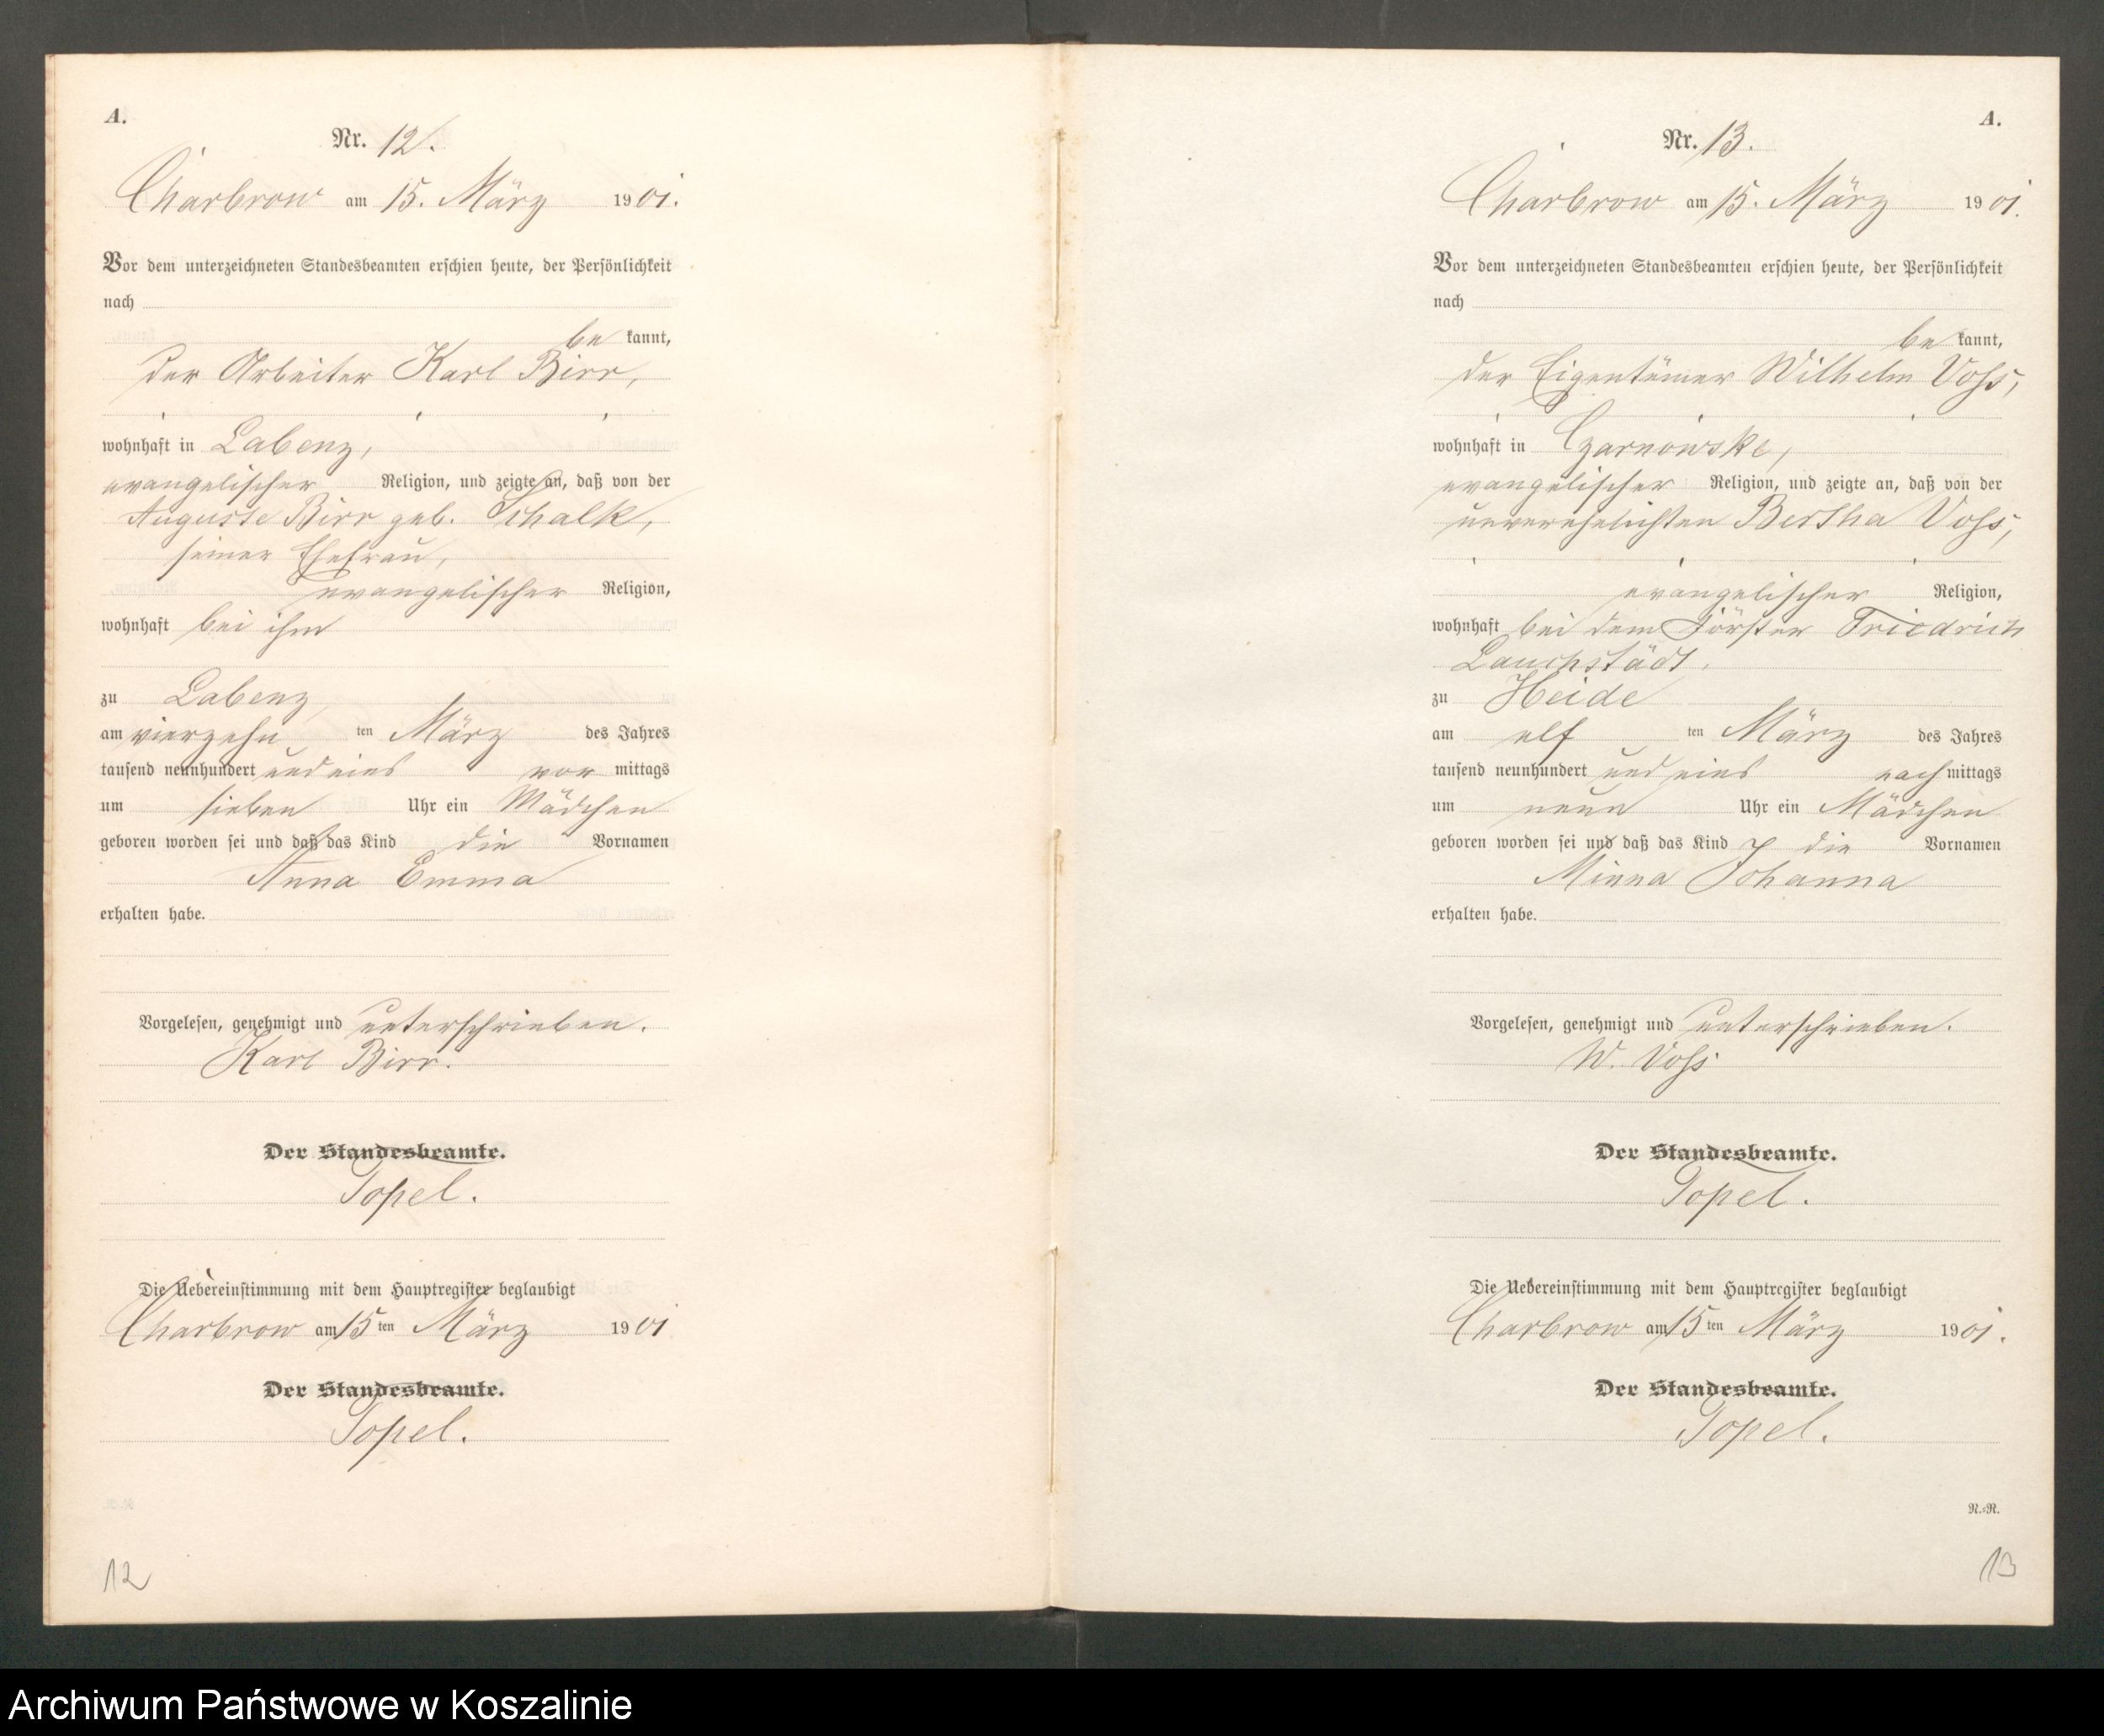 A.
Nr. 12.
Charbrow am 15. März 1901.
Vor dem unterzeichneten Standesbeamten erschien heute, der Persönlichkeit
nach
be kannt,
der Arbeiter Karl Birr,
wohnhaft in Labenz,
evangelischer Religion, und zeigte an, daß von der
Auguste Birr geb. Schalk,
seiner Ehefrau,
evangelischer Religion,
wohnhaft bei ihm
zu Labenz
am vierzehn ten März des Jahres
tausend neunhundert und eins vor mittags
um sieben Uhr ein Mädchen
geboren worden sei und daß das Kind die Vornamen
Anna Emma
erhalten habe.
Vorgelesen, genehmigt und unterschrieben.
Karl Birr.
Der Standesbeamte.
Topel.
Die Uebereinstimmung mit dem Hauptregister beglaubigt
Charbrow am 15 ten März 1901
Der Standesbeamte.
Topel.
12
A.
Nr. 13.
Charbrow am 15. März 1901.
Vor dem unterzeichneten Standesbeamten erschien heute, der Persönlichkeit
nach
be kannt,
der Eigentümer Wilhelm Voß,
wohnhaft in Czarnowske,
evangelischer Religion, und zeigte an, daß von der
unverehelichten Bertha Voß,
evangelischer Religion,
wohnhaft bei dem Förster Friedrich
Lauchstädt,
zu Heide
am elf ten März des Jahres
tausend neunhundert und eins nach mittags
um neun Uhr ein Mädchen
geboren worden sei und daß das Kind die Vornamen
Minna Johanna
erhalten habe.
Vorgelesen, genehmigt und unterschrieben.
W. Voß
Der Standesbeamte.
Topel.
Die Uebereinstimmung mit dem Hauptregister beglaubigt
Charbrow am 15 ten März 1901.
Der Standesbeamte.
Topel.
N.=R.
13
Archiwum Państwowe w Koszalinie